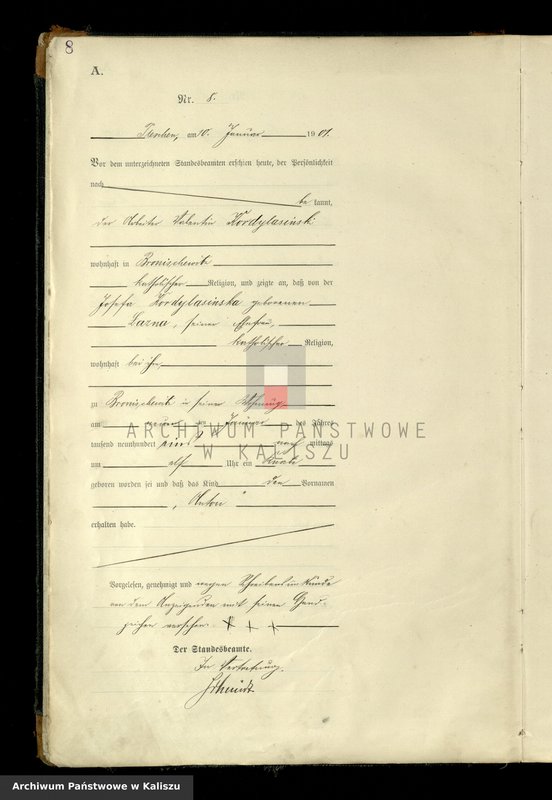 8
A.
Nr. 8.
Pleschen, am 10. Januar 1901.
Vor dem unterzeichneten Standesbeamten erschien heute, der Persönlichkeit
nach
be kannt,
der Arbeiter Valentin Kordylasinski
wohnhaft in Bronischewitz
katholischer Religion, und zeigte an, daß von der
Josefa Kordylasinska geborenen
Lazna, seiner Ehefrau,
katholischer Religion,
wohnhaft bei ihm,
zu Bronischewitz in seiner Wohnung
am Januar des Jahres
tausend neunhundert eins nach mittags
um elf Uhr ein Knabe
geboren worden sei und daß das Kind den Vornamen
„Anton"
erhalten habe.
Vorgelesen, genehmigt und wegen Schreibensunkunde
von dem Anzeigenden mit seinem Hand-
zeichen versehen. + + +
Der Standesbeamte.
In Vertretung.
Schmidt
ARCHIWUM PAŃSTWOWE
W KALISZU
Archiwum Państwowe w Kaliszu